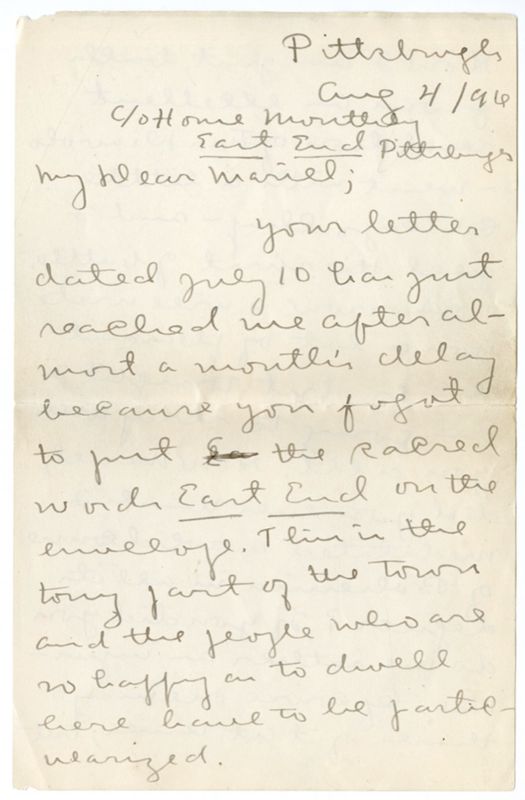 Pittsburgh
Aug 4/96
c/o Home Monthly
East End Pittsburgh
My Dear Mariel;
Your letter
dated July 10 has just
reached me after al-
most a month's delay
because you fogot
to put Ea the sacred
words East End on the
envelope. This is the
tony part of the Town
and the people who are
so happy as to dwell
here have to be partic-
ularized.